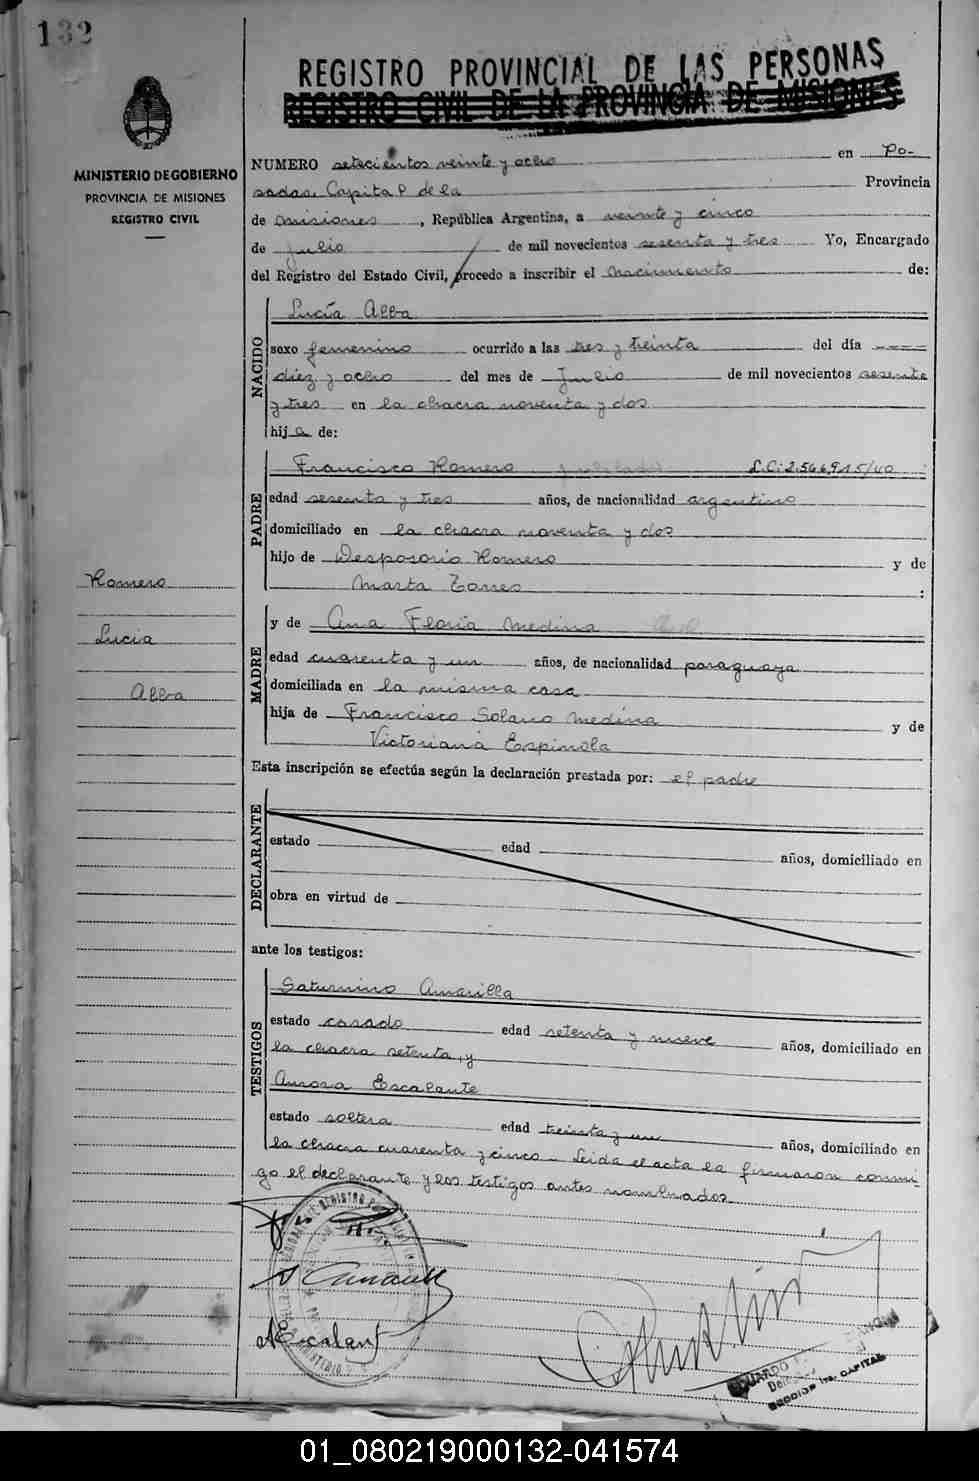 132
REGISTRO PROVINCIAL DE LAS PERSONAS
REGISTRO CIVIL DE LA PROVINCIA DE MISIONES
MINISTERIO DE GOBIERNO
PROVINCIA DE MISIONES
REGISTRO CIVIL
NUMERO setecientos veinte y ocho en Po-
sadas, Capital de la Provincia
de Misiones, República Argentina, a veinte y cinco
de julio de mil novecientos sesenta y tres Yo, Encargado
del Registro del Estado Civil, procedo a inscribir el nacimiento de:
NACIDO
Lucía Alba
sexo femenino ocurrido a las tres y treinta del día ----
diez y ocho del mes de Julio de mil novecientos sesenta
y tres en la chacra noventa y dos
hija de:
PADRE
Francisco Romero L.C: 2.566.915/40 :
edad sesenta y tres años, de nacionalidad argentino
domiciliado en la chacra noventa y dos
hijo de Desposorio Romero y de
Marta Torres :
Romero
Lucía
Alba
MADRE
y de Ana Floria Medina
edad cuarenta y un años, de nacionalidad paraguaya
domiciliada en la misma casa
hija de Francisco Solano Medina y de
Victoriana Espinola
Esta inscripción se efectúa según la declaración prestada por: el padre
DECLARANTE
estado edad años, domiciliado en
obra en virtud de
ante los testigos:
TESTIGOS
Saturnino Amarilla
estado casado edad setenta y nueve años, domiciliado en
la chacra setenta, y
Aurora Escalante
estado soltera edad treinta y un años, domiciliado en
la chacra cuarenta y cinco - Leida el acta la firmaron conmi-
go el declarante y los testigos antes nombrados
A Escalant
EDUARDO
SECCION 1ra. CAPITAL
01_080219000132-041574